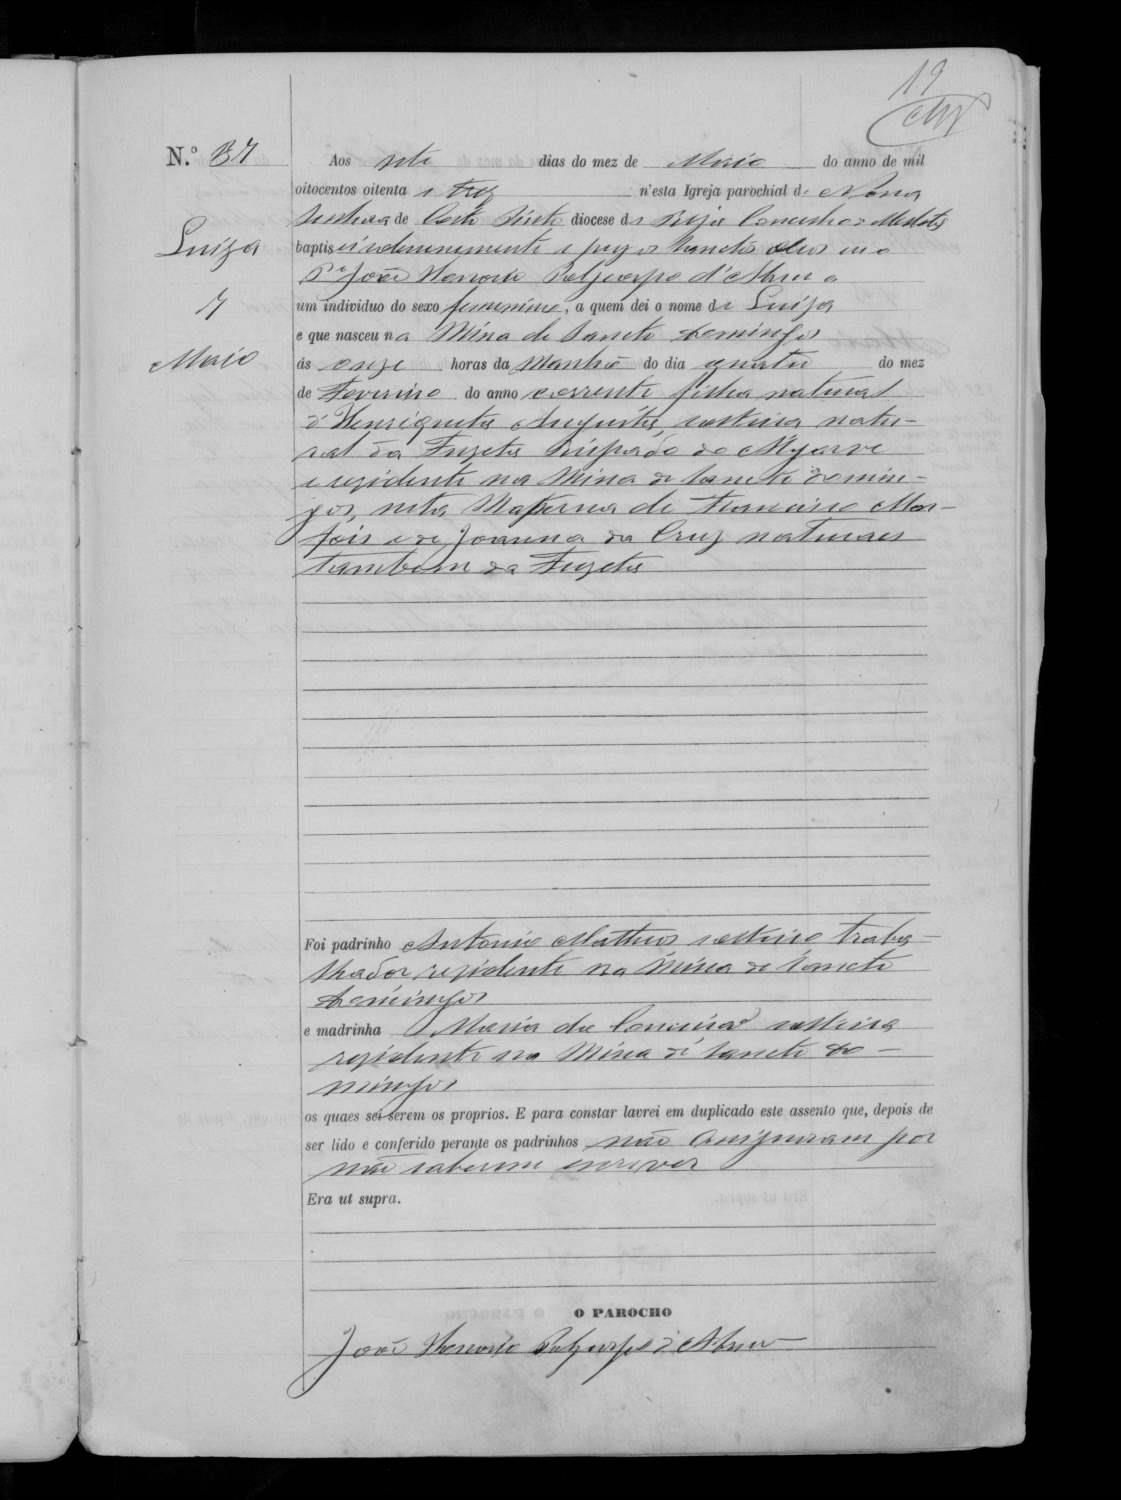 19
N.º 37
Luiza
7
Maio
Aos sete dias do mez de Maio do anno de mil
oitocentos oitenta e trez n'esta Igreja parochial de Nossa
Senhora de Corte Pinto diocese de Beja Concelho de Mertola
baptisei solemnemente e puz os Sanctos oleos eu o
P.e João Honorio Polycarpo d'Abreu a
um individuo do sexo femenino, a quem dei o nome de Luiza
e que nasceu na Mina de Sancto Domingos
ás onze horas da Manhã do dia quatro do mez
de Fevereiro do anno corrente filha natural
d'Henriqueta Augusta, solteira natu-
ral da Fuzeta Bispado do Algarve
e rezidente na Mina de Sancto Domin-
gos, neta Materna de Francisco
e de Joanna da Cruz naturaes
tambem da Fuzeta
Foi padrinho Antonio Matheus solteiro traba-
lhador rezidente na Mina de Sancto
Domingos
e madrinha Maria da Conceição solteira
rezidente na Mina de Sancto Do-
mingos
os quaes sei serem os proprios. E para constar lavrei em duplicado este assento que, depois de
ser lido e conferido perante os padrinhos não assignaram por
não saberem escrever
Era ut supra.
O PAROCHO
João Honorio Polycarpo d'Abreu